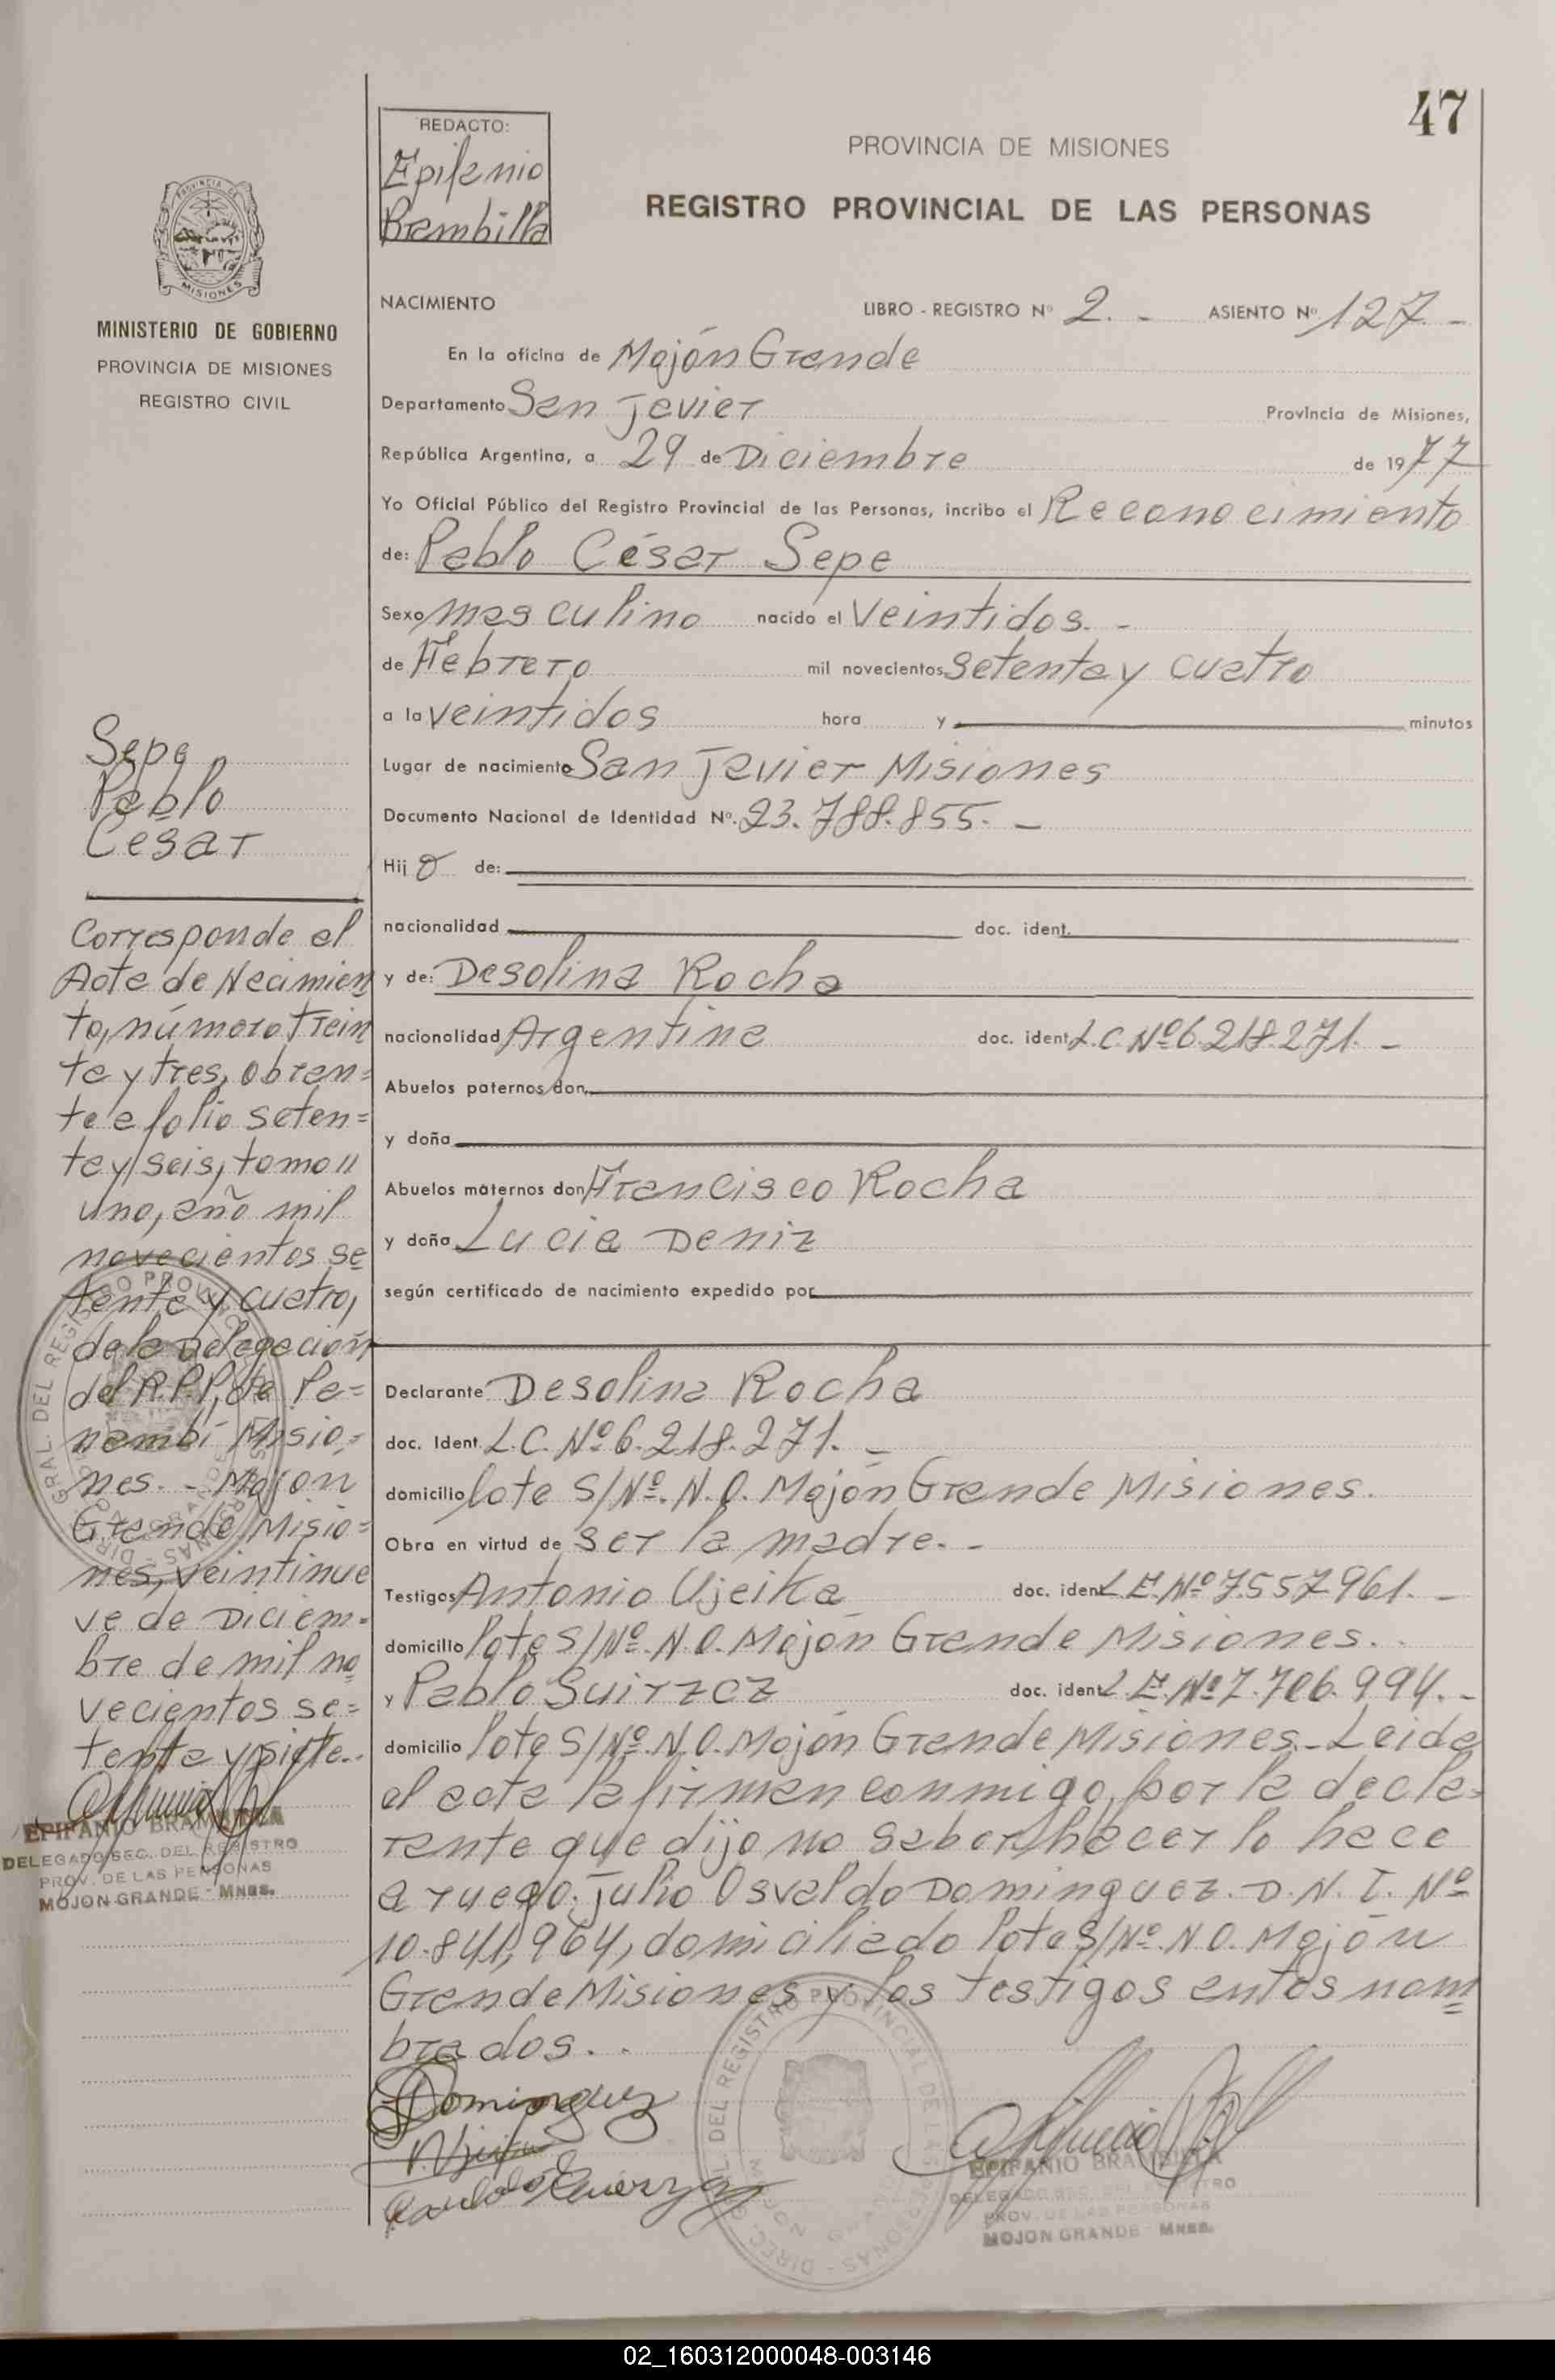 47
REDACTO:
Epifanio
Brambilla
PROVINCIA DE MISIONES
REGISTRO PROVINCIAL DE LAS PERSONAS
MISIONES
MINISTERIO DE GOBIERNO
PROVINCIA DE MISIONES
REGISTRO CIVIL
NACIMIENTO LIBRO - REGISTRO Nº 2. - ASIENTO Nº 127. -
En la oficina de Mojón Grande
Departamento San Javier Provincia de Misiones,
República Argentina, a 29 de Diciembre de 1977
Yo Oficial Público del Registro Provincial de las Personas, incribo el Reconocimiento
de: Pablo César Sepe
Sexo masculino nacido el Veintidos. -
de Febrero mil novecientos Setenta y cuatro
a la veintidos hora y minutos
Lugar de nacimiento San Javier Misiones
Documento Nacional de Identidad Nº. 23.788.855. -
Hij o de:
nacionalidad doc. ident.
y de: Desolina Rocha
nacionalidad Argentina doc. ident. L.C. Nº 6.218.271. -
Abuelos paternos don
y doña
Abuelos maternos don Francisco Rocha
y doña Lucia Deniz
según certificado de nacimiento expedido por
Declarante Desolina Rocha
doc. Ident. L.C. Nº 6.218.271. -
domicilio lote S/Nº. N.O. Mojón Grande Misiones.
Obra en virtud de ser la madre. -
Testigos Antonio Ujeika doc. ident L.E. Nº 7.557.961. -
domicilio lote S/Nº. N.O. Mojón Grande Misiones.
y Pablo Suirzez doc. ident L.E. Nº 7.706.994. -
domicilio lote S/Nº. N.O. Mojón Grande Misiones. Leida
el acta la firman conmigo, por la decla=
rante que dijo no saber hacer lo hace
a ruego. Julio Osvaldo Dominguez. D.N.I. Nº
10.841,964, domiciliado lote S/Nº. N.O. Mojón
Grande Misiones y los testigos antes nom
brados.
Dominguez
Sepe
Pablo
Cesar
Corresponde al
Acta de Nacimien
to, número trein
ta y tres, obran=
te a folio seten=
ta y seis, tomo
uno, año mil
novecientos se
tenta y cuatro,
de la Delegación
del R.P.P, de Pa=
nambí Misio=
nes. - Mojon
Grande Misio=
nes, veintinue
ve de Diciem=
bre de mil no
vecientos se=
tenta y siete.
EPIFANIO BRAMBILLA
DELEGADO SEC. DEL REGISTRO
PROV. DE LAS PERSONAS
MOJON GRANDE - Mnes.
EPIFANIO BRAMBILLA
DELEGADO SEC. DEL REGISTRO
PROV. DE LAS PERSONAS
MOJON GRANDE - Mnes.
02_160312000048-003146